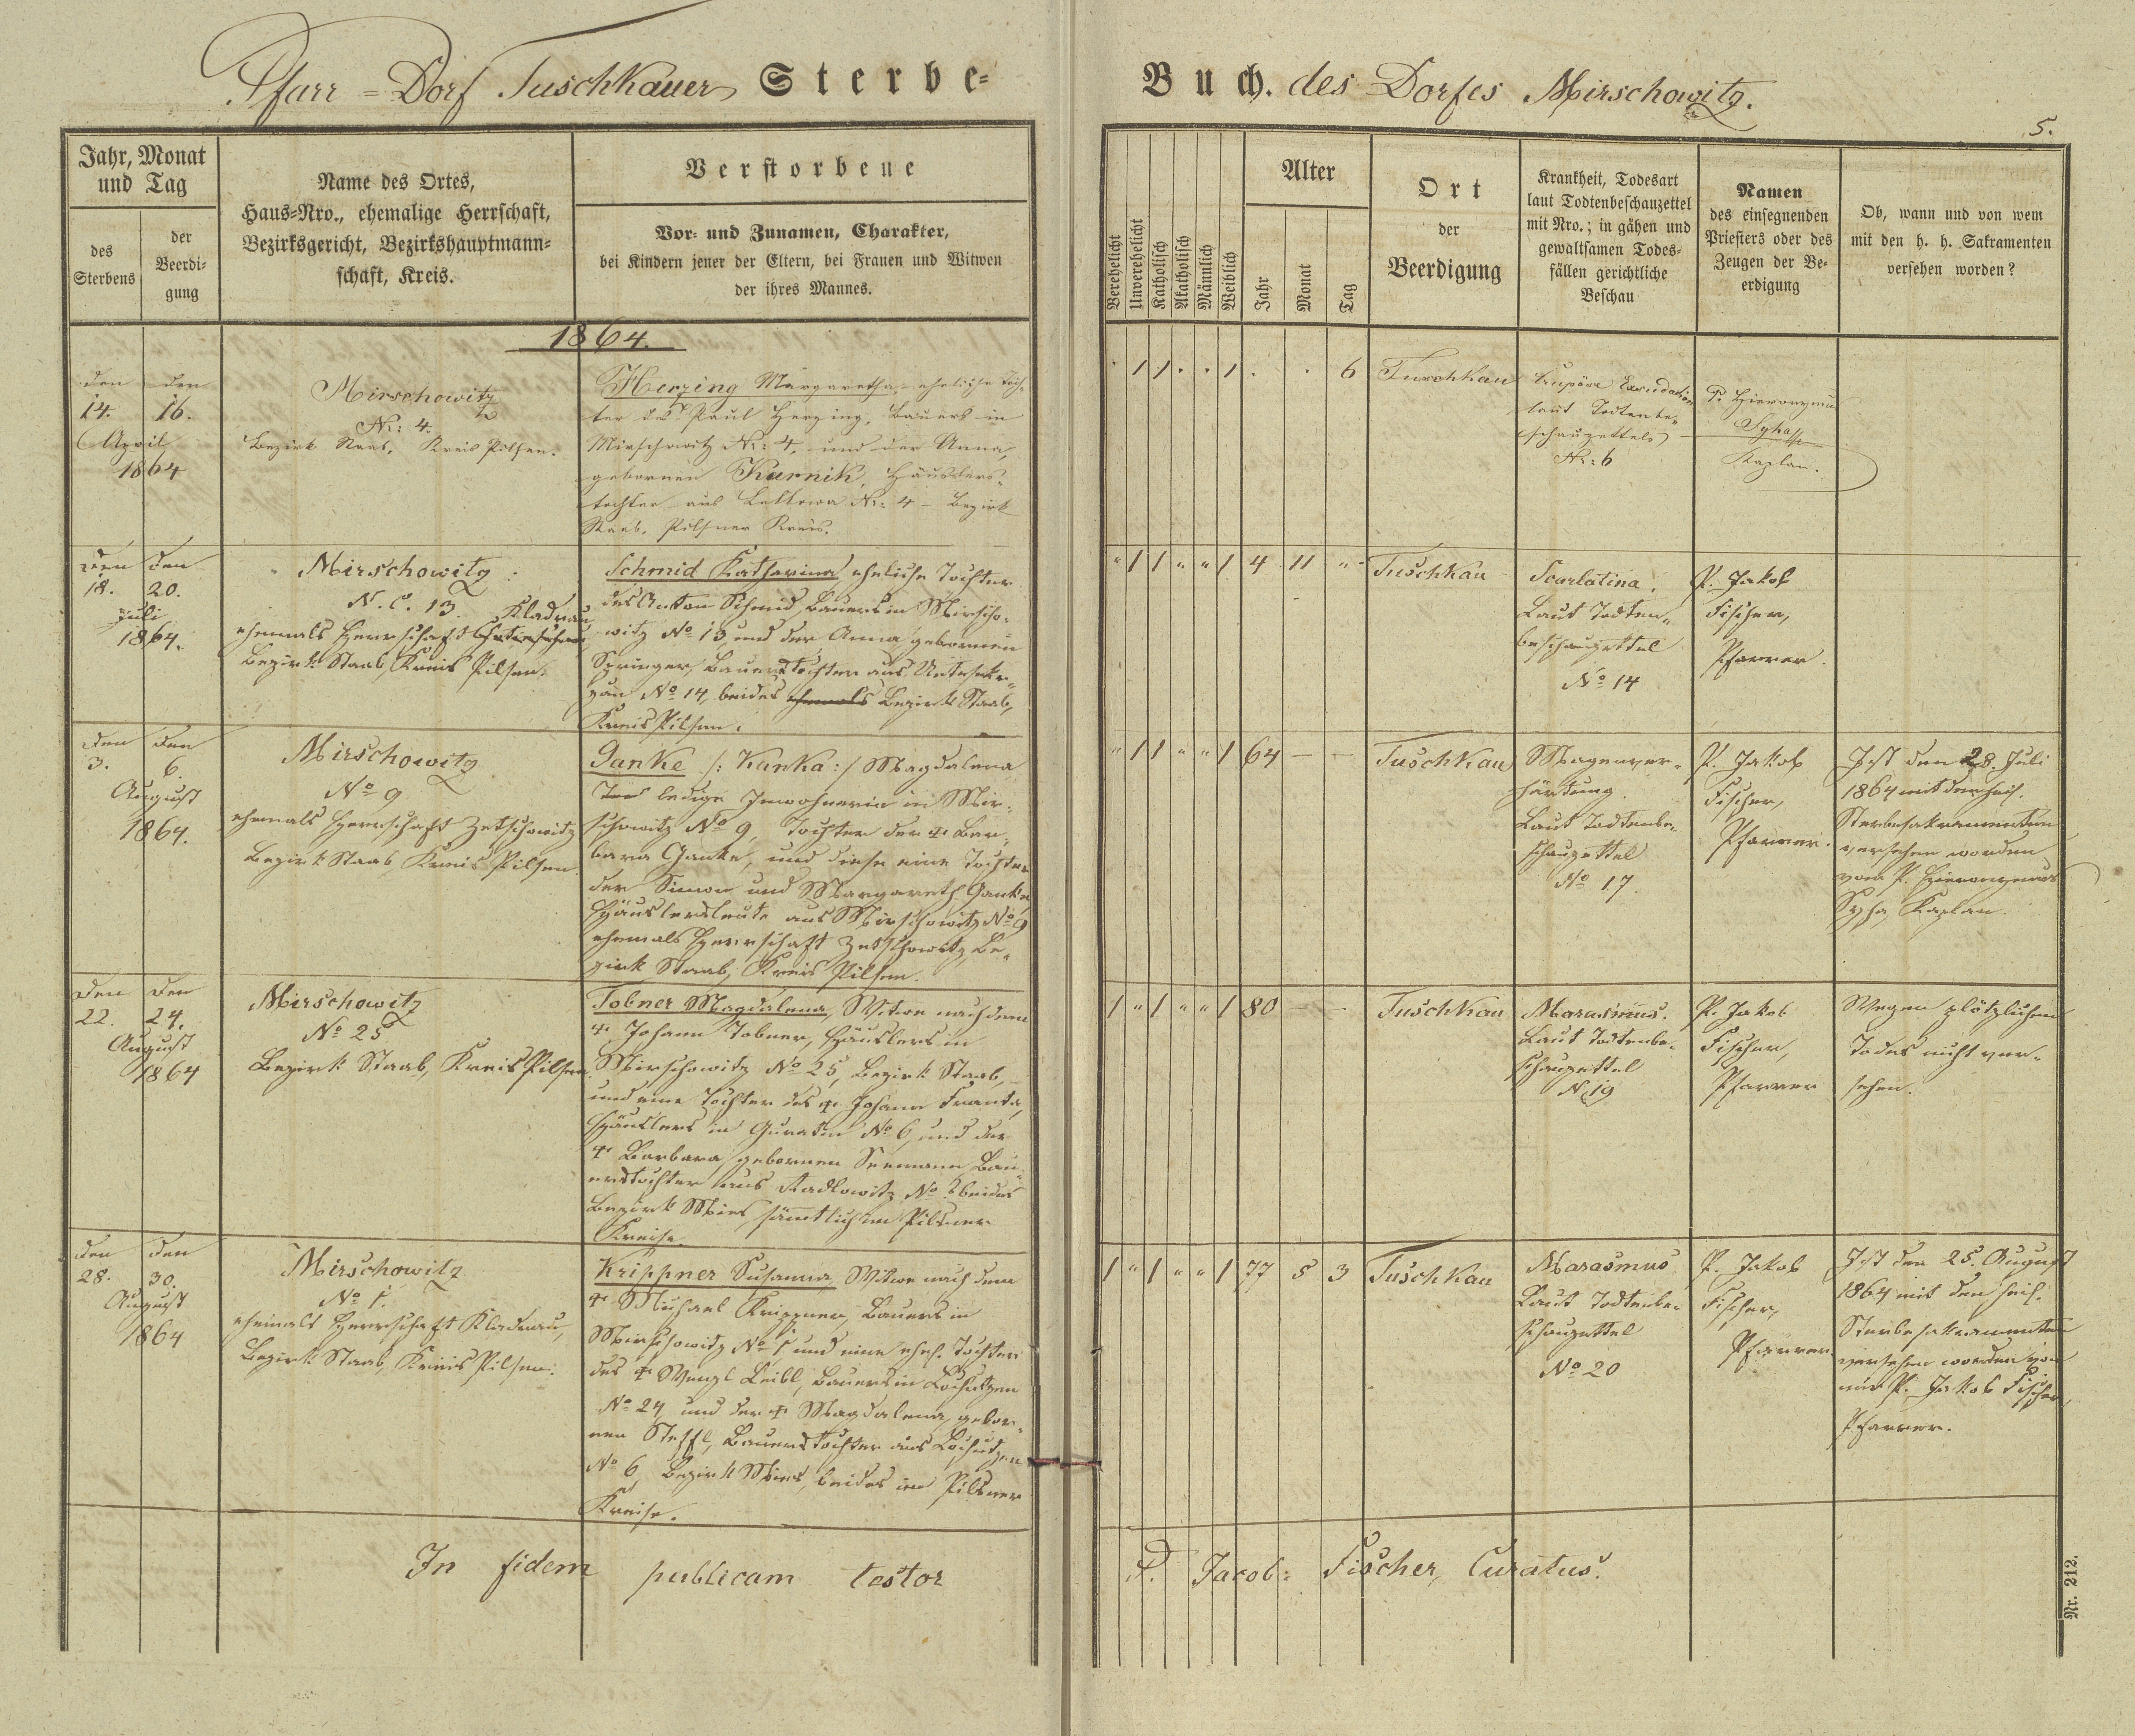 Pfarr=Dorf Tuschkauer Sterbe=
Buch. des Dorfes Mirschowitz.
5.
Jahr, Monat
und Tag
des
Sterbens
der
Beerdi=
gung
Name des Ortes,
Haus=Nro., ehemalige Herrschaft,
Bezirksgericht, Bezirkshauptmann=
schaft, Kreis.
Verstorbene
Vor= und Zunamen, Charakter,
bei Kindern jener der Eltern, bei Frauen und Witwen
der ihres Mannes.
Verehelicht
Unverehelicht
Katholisch
Akatholisch
Männlich
Weiblich
Alter
Jahr
Monat
Tag
Ort
der
Beerdigung
Krankheit, Todesart
laut Todtenbeschauzettel
mit Nro.; in gähen und
gewaltsamen Todes=
fällen gerichtliche
Beschau
Namen
des einsegnenden
Priesters oder des
Zeugen der Be=
erdigung
Ob, wann und von wem
mit den h. h. Sakramenten
versehen worden?
1864.
den den
14. 16.
April
1864
Mirschowitz
Nr: 4.
Bezirk Staab, Kreis Pilsen.
Herzing Margaretha, eheliche Toch=
ter des Paul Herzing, Bauers in
Mirschowitz Nr: 4, und der Anna,
gebornen Kurnik, Häuslers=
tochter aus Lellowa Nr: 4 – Bezirk
Staab, Pilsner Kreis.
" 1 1 " " 1 " " 6
Tuschkau
Exsudation
laut Todtenbe=
schauzettels
Nr: 6
P. Hieronymus
Syha
Kaplan.
den den
18. 20.
Juli
1864.
Mirschowitz
N. C. 13. Kladrau
ehemals Herrschaft
Bezirk Staab, Kreis Pilsen.
Schmid Katharina, eheliche Tochter
des Anton Schmid, Bauers in Mirscho=
witz No 13 und der Anna gebornen
Springer, Bauerstochter aus
No 14, beides ehemals Bezirk Staab,
Kreis Pilsen.
" 1 1 " " 1 4 11 "
Tuschkau
Scarlatina.
Laut Todten=
beschauzettel
No 14
P. Jakob
Fischer,
Pfarrer.
den den
3. 6.
August
1864.
Mirschowitz
No 9
ehemals Herrschaft Zetschowitz
Bezirk Staab, Kreis Pilsen.
Ganke /: Kanka :/ Magdalena
ledige Inwohnerin in Mir=
schowitz No 9, Tochter der † Bar=
bara Ganke, und diese eine Tochter
der Simon und Margareth Ganke,
Häuslersleute aus Mirschowitz No 9
ehemals Herrschaft Zetschowitz, Be=
zirk Staab, Kreis Pilsen.
" 1 1 " " 1 64 – –
Tuschkau
Magenver=
härtung.
Laut Todtenbe=
schauzettel
No 17.
P. Jakob
Fischer,
Pfarrer.
Ist den 28. Juli
1864 mit den heil.
Sterbesakramenten
versehen worden
vom P. Hieronymus
Syha, Kaplan.
den den
22. 24.
August
1864
Mirschowitz
No 25
Bezirk Staab, Kreis Pilsen.
Tobner Magdalena, Witwe nach dem
† Johann Tobner, Häuslers in
Mirschowitz No 25, Bezirk Staab,
und eine Tochter des † Johann Franta,
Häuslers in Guratin No 6, und der
† Barbara gebornen Seemann Bau=
erstochter aus Radlowitz No ? beides
Bezirk Mies, sämmtlich im Pilsner
Kreise.
1 " 1 " " 1 80 – –
Tuschkau
Marasmus.
Laut Todtenbe=
schauzettel
N. 19
P. Jakob
Fischer,
Pfarrer
Wegen plötzlichem
Todes nicht ver=
sehen.
den den
28. 30.
August
1864
Mirschowitz
No 1.
ehemals Herrschaft Kladrau,
Bezirk Staab, Kreis Pilsen.
Krippner Susanna, Witwe nach dem
† Michael Krippner, Bauers in
Mirschowitz No 1 und eine ehel. Tochter
des † Wenzl Leibl, Bauers in Lochutzen
No 24 und der † Magdalena, gebor=
nen Steffl, Bauerstochter aus Lochutzen
No 6, Bezirk Mies, beides im Pilsner
Kreise.
1 " 1 " " 1 77 5 3
Tuschkau
Marasmus
Laut Todtenbe=
schauzettel
No 20
P. Jakob
Fischer,
Pfarrer.
Ist den 25. August
1864 mit den heil.
Sterbesakramenten
versehen worden von
mir P. Jakob Fischer,
Pfarrer.
In fidem publicam testor
P. Jacob: Fischer, Curatus.
Nr. 212.